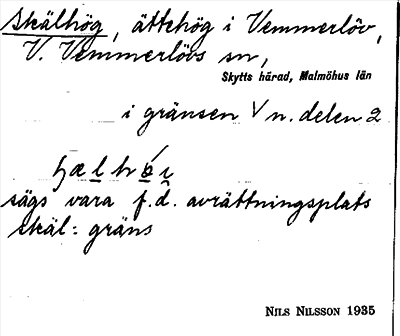 Skälhög, ättehög i Vemmerlöv,
V. Vemmerlövs sn,
Skytts härad, Malmöhus län
i gränsen V n. delen 2
sägs vara f.d. avrättningsplats
skäl: gräns
NILS NILSSON 1935